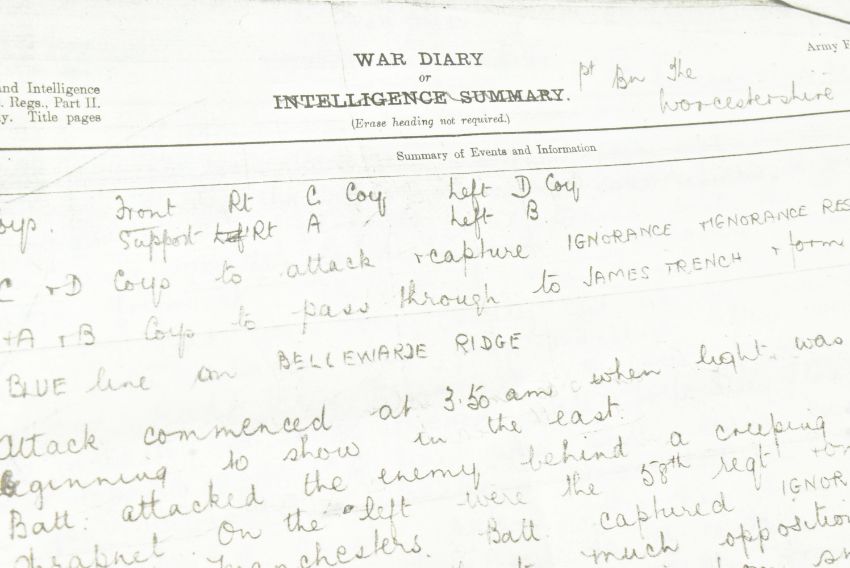 Army F
WAR DIARY
or
INTELLIGENCE SUMMARY.
(Erase heading not required.)
and Intelligence
. Regs., Part II.
y. Title pages
pt Bn The
Worcestershire
Summary of Events and Information
oys. Front Rt C Coy Left D Coy
Support Left Rt A Left B.
C + D Coys to attack + capture IGNORANCE + IGNORANCE RES
+ A + B Coys to pass through to JAMES TRENCH + form
BLUE line on BELLEWARDE RIDGE
Attack commenced at 3.50 am when light was
beginning to show in the east.
Batt. attacked the enemy behind a creeping
shrapnel. On the left were the 58th regt
anchesters. Batt. captured IGNOR
much opposition